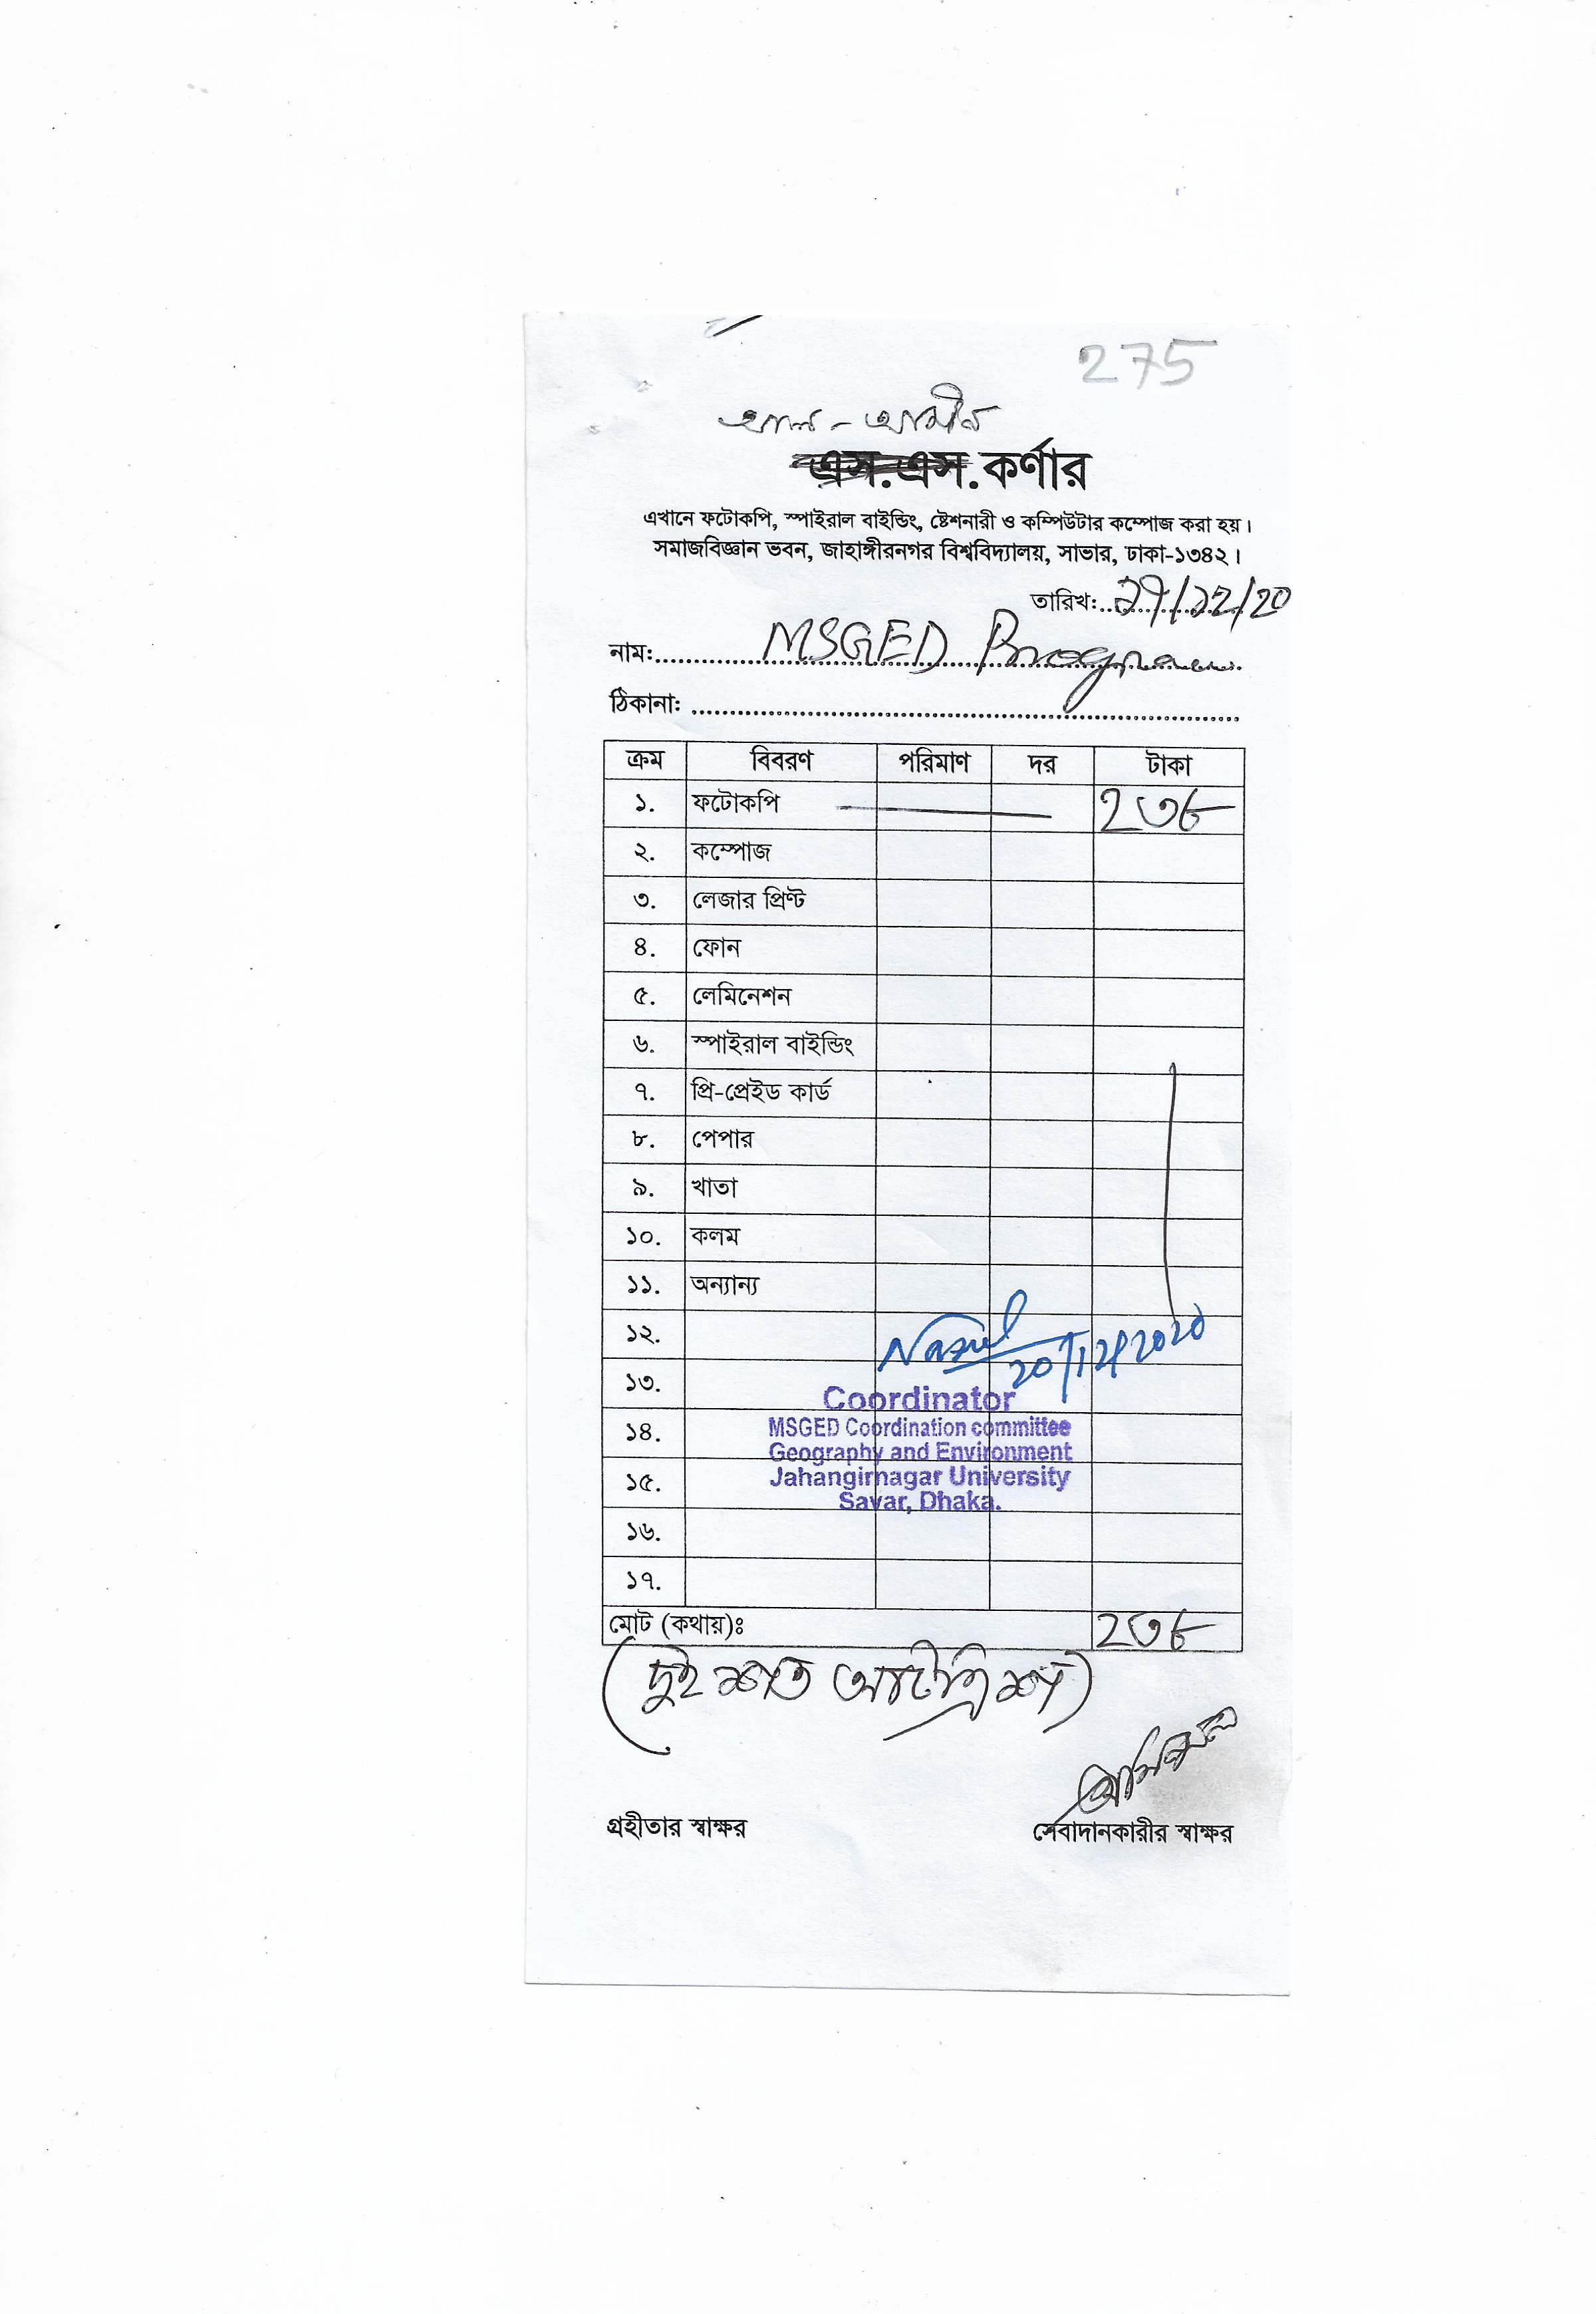 275
আল-আমীন
এস.এস.কর্ণার
এখানে ফটোকপি, স্পাইরাল বাইন্ডিং, ষ্টেশনারী ও কম্পিউটার কম্পোজ করা হয়।
সমাজবিজ্ঞান ভবন, জাহাঙ্গীরনগর বিশ্ববিদ্যালয়, সাভার, ঢাকা-১৩৪২।
তারিখঃ
নামঃ MSGED Program
ঠিকানাঃ
ক্রম বিবরণ পরিমাণ দর টাকা
১. ফটোকপি ২৩৮
২. কম্পোজ
৩. লেজার প্রিন্ট
৪. ফোন
৫. লেমিনেশন
৬. স্পাইরাল বাইন্ডিং
৭. প্রি-প্রেইড কার্ড
৮. পেপার
৯. খাতা
১০. কলম
১১. অন্যান্য
১২.
20/12/2020
১৩.
Coordinator
১৪.
MSGED Coordination committee
Geography and Environment
১৫.
Jahangirnagar University
Savar, Dhaka.
১৬.
১৭.
মোট (কথায়)ঃ ২৩৮
(দুই শত আটত্রিশ)
গ্রহীতার স্বাক্ষর সেবাদানকারীর স্বাক্ষর